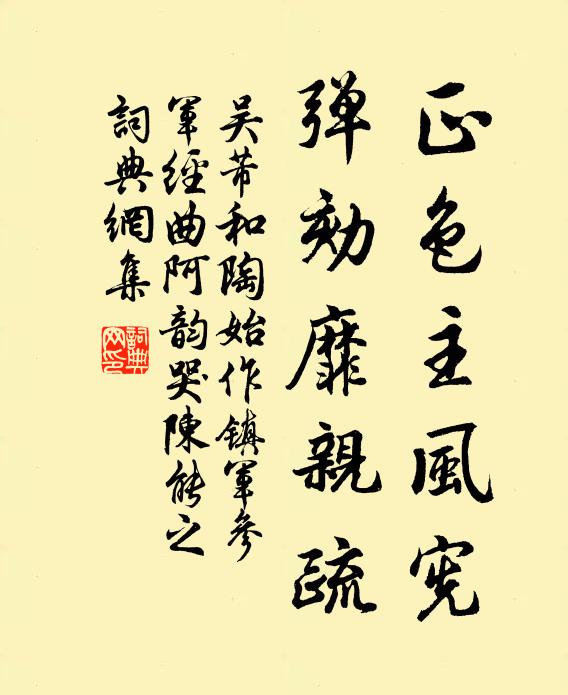 正色主風憲
彈劾靡親疏
吴芾和陶始作鎮軍參
軍經曲阿韵哭陳能之
詞典網集
詞典
网印